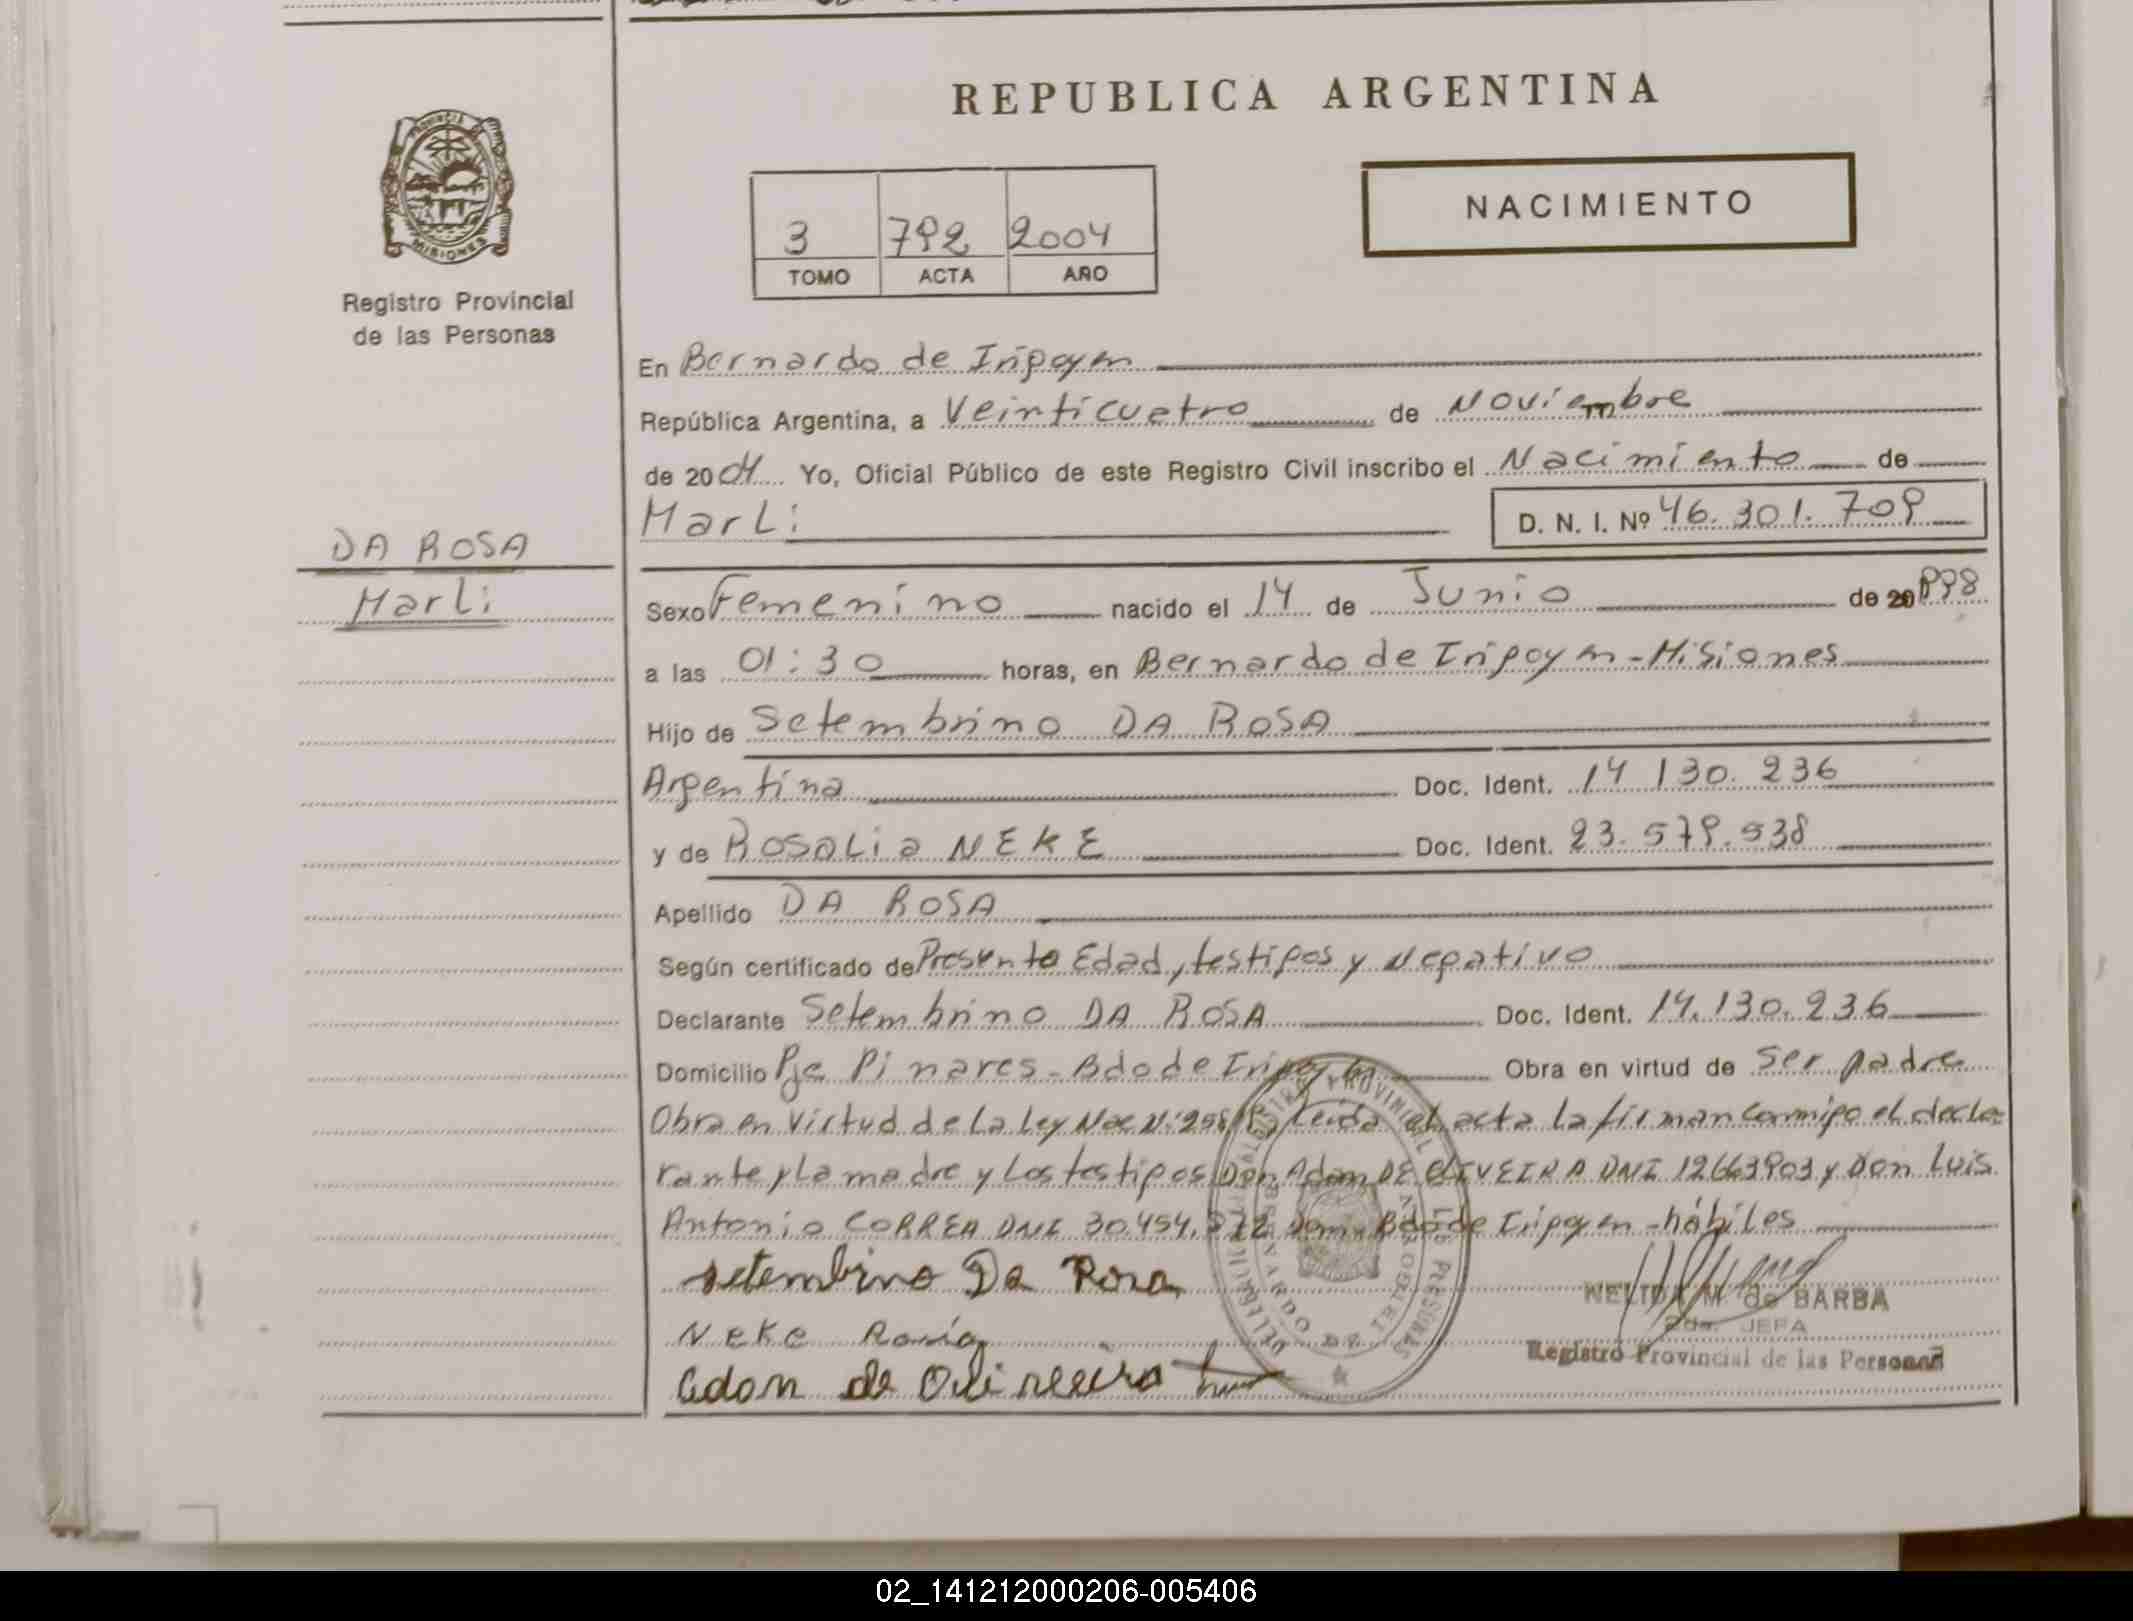 REPUBLICA ARGENTINA
PROVINCIA DE
MISIONES
Registro Provincial
de las Personas
3 792 2004
TOMO ACTA AÑO
NACIMIENTO
En Bernardo de Irigoyen
República Argentina, a Veinticuatro de Noviembre
de 2004 Yo, Oficial Público de este Registro Civil inscribo el Nacimiento de
Marli D. N. I. Nº 46.301.709
DA ROSA
Marli
Sexo Femenino nacido el 14 de Junio de 1998
a las 01:30 horas, en Bernardo de Irigoyen - Misiones
Hijo de Setembrino DA ROSA
Argentina Doc. Ident. 14 130. 236
y de Rosalia NEKE Doc. Ident. 23.579.538
Apellido DA ROSA
Según certificado de Presunta Edad, testigos y Negativo
Declarante Setembrino DA ROSA Doc. Ident. 14.130.236
Domicilio Pje Pinares - Bdo de Irigoyen Obra en virtud de Ser padre
Obra en Virtud de La Ley Nac N: Leida el acta la firman conmigo el decla-
rante y La madre y Los testigos Don Adam DE OLIVEIRA DNI 12663903 y Don Luis
Antonio CORREA DNI 30.454. Dom. Bdo de Irigoyen - hábiles
setembrino Da Rosa
Neke
Adon de Oliveira
NELIDA M. de BARBA
2da. JEFA
Registro Provincial de las Personas
02_141212000206-005406